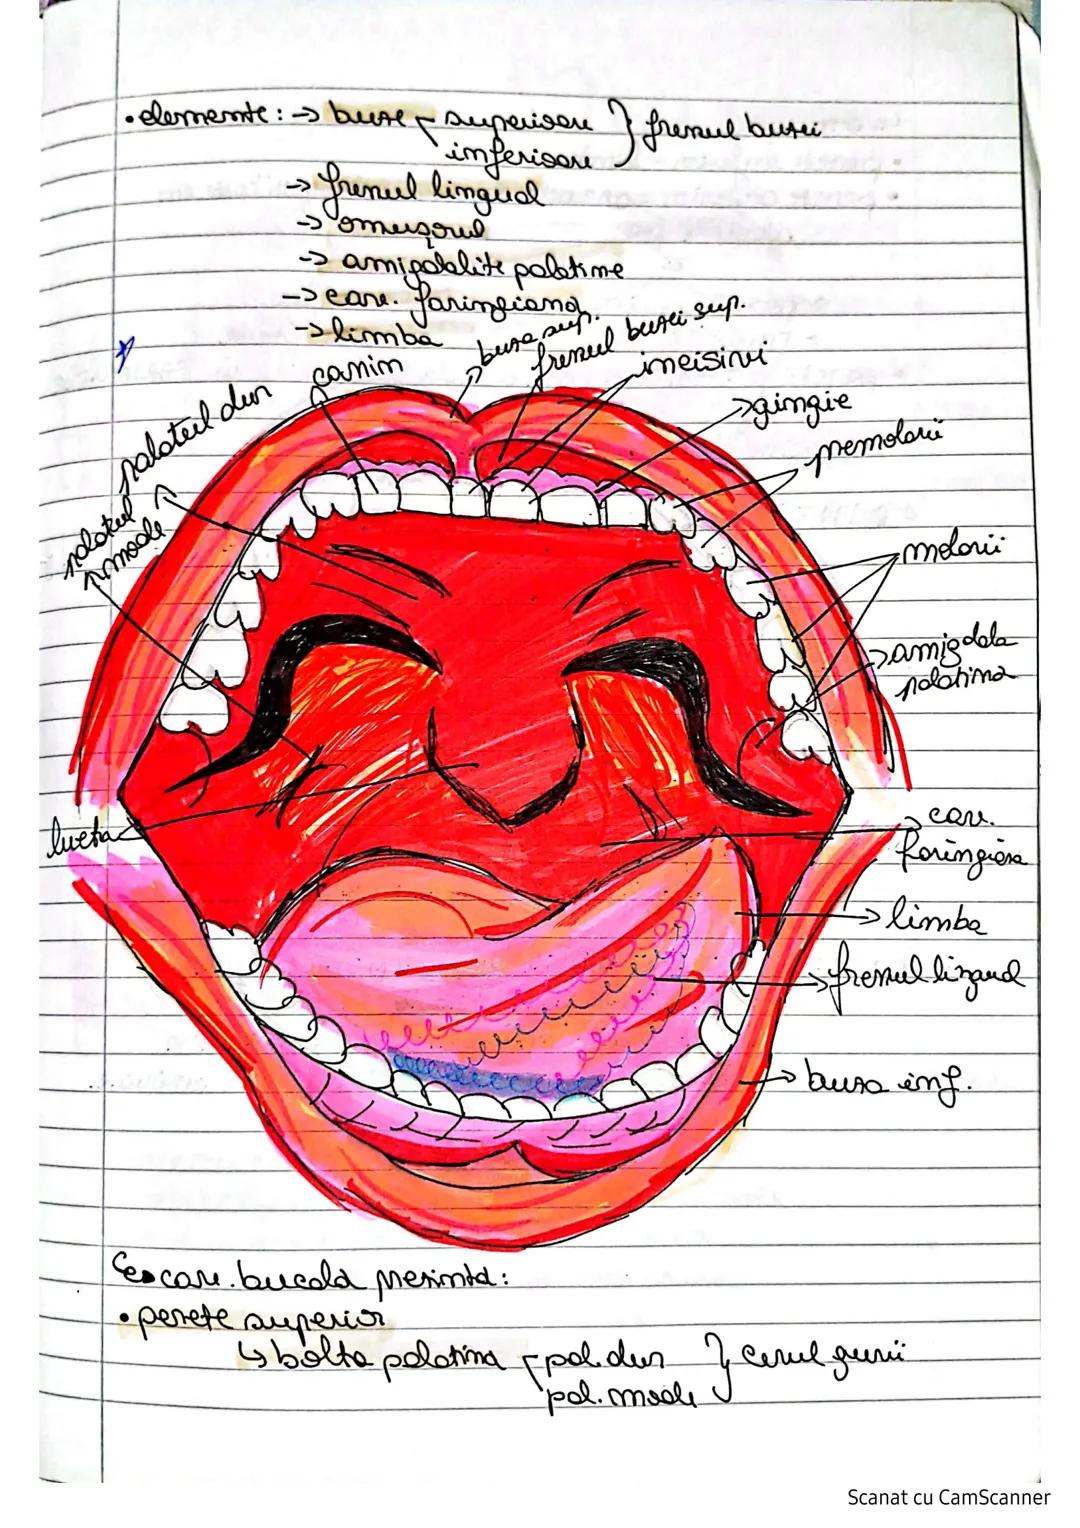 •elemente: → buze superioară } frenul buzei
inferioară
→ frenul lingual
→ omușorul
→ amigdalite palatine
→ cav. faringiană
→ limba
canin
buza sup.
frenul buzei sup.
incisivi
palatul dur
gingie
premolarii
palatul moale
molarii
amigdala palatină
lueta
cav. faringiană
limba
frenul lingual
buza inf.
cav. bucală prezintă:
• perete superior
↳ bolta palatină pal. dur } cerul gurii
pal. moale
Scanat cu CamScanner